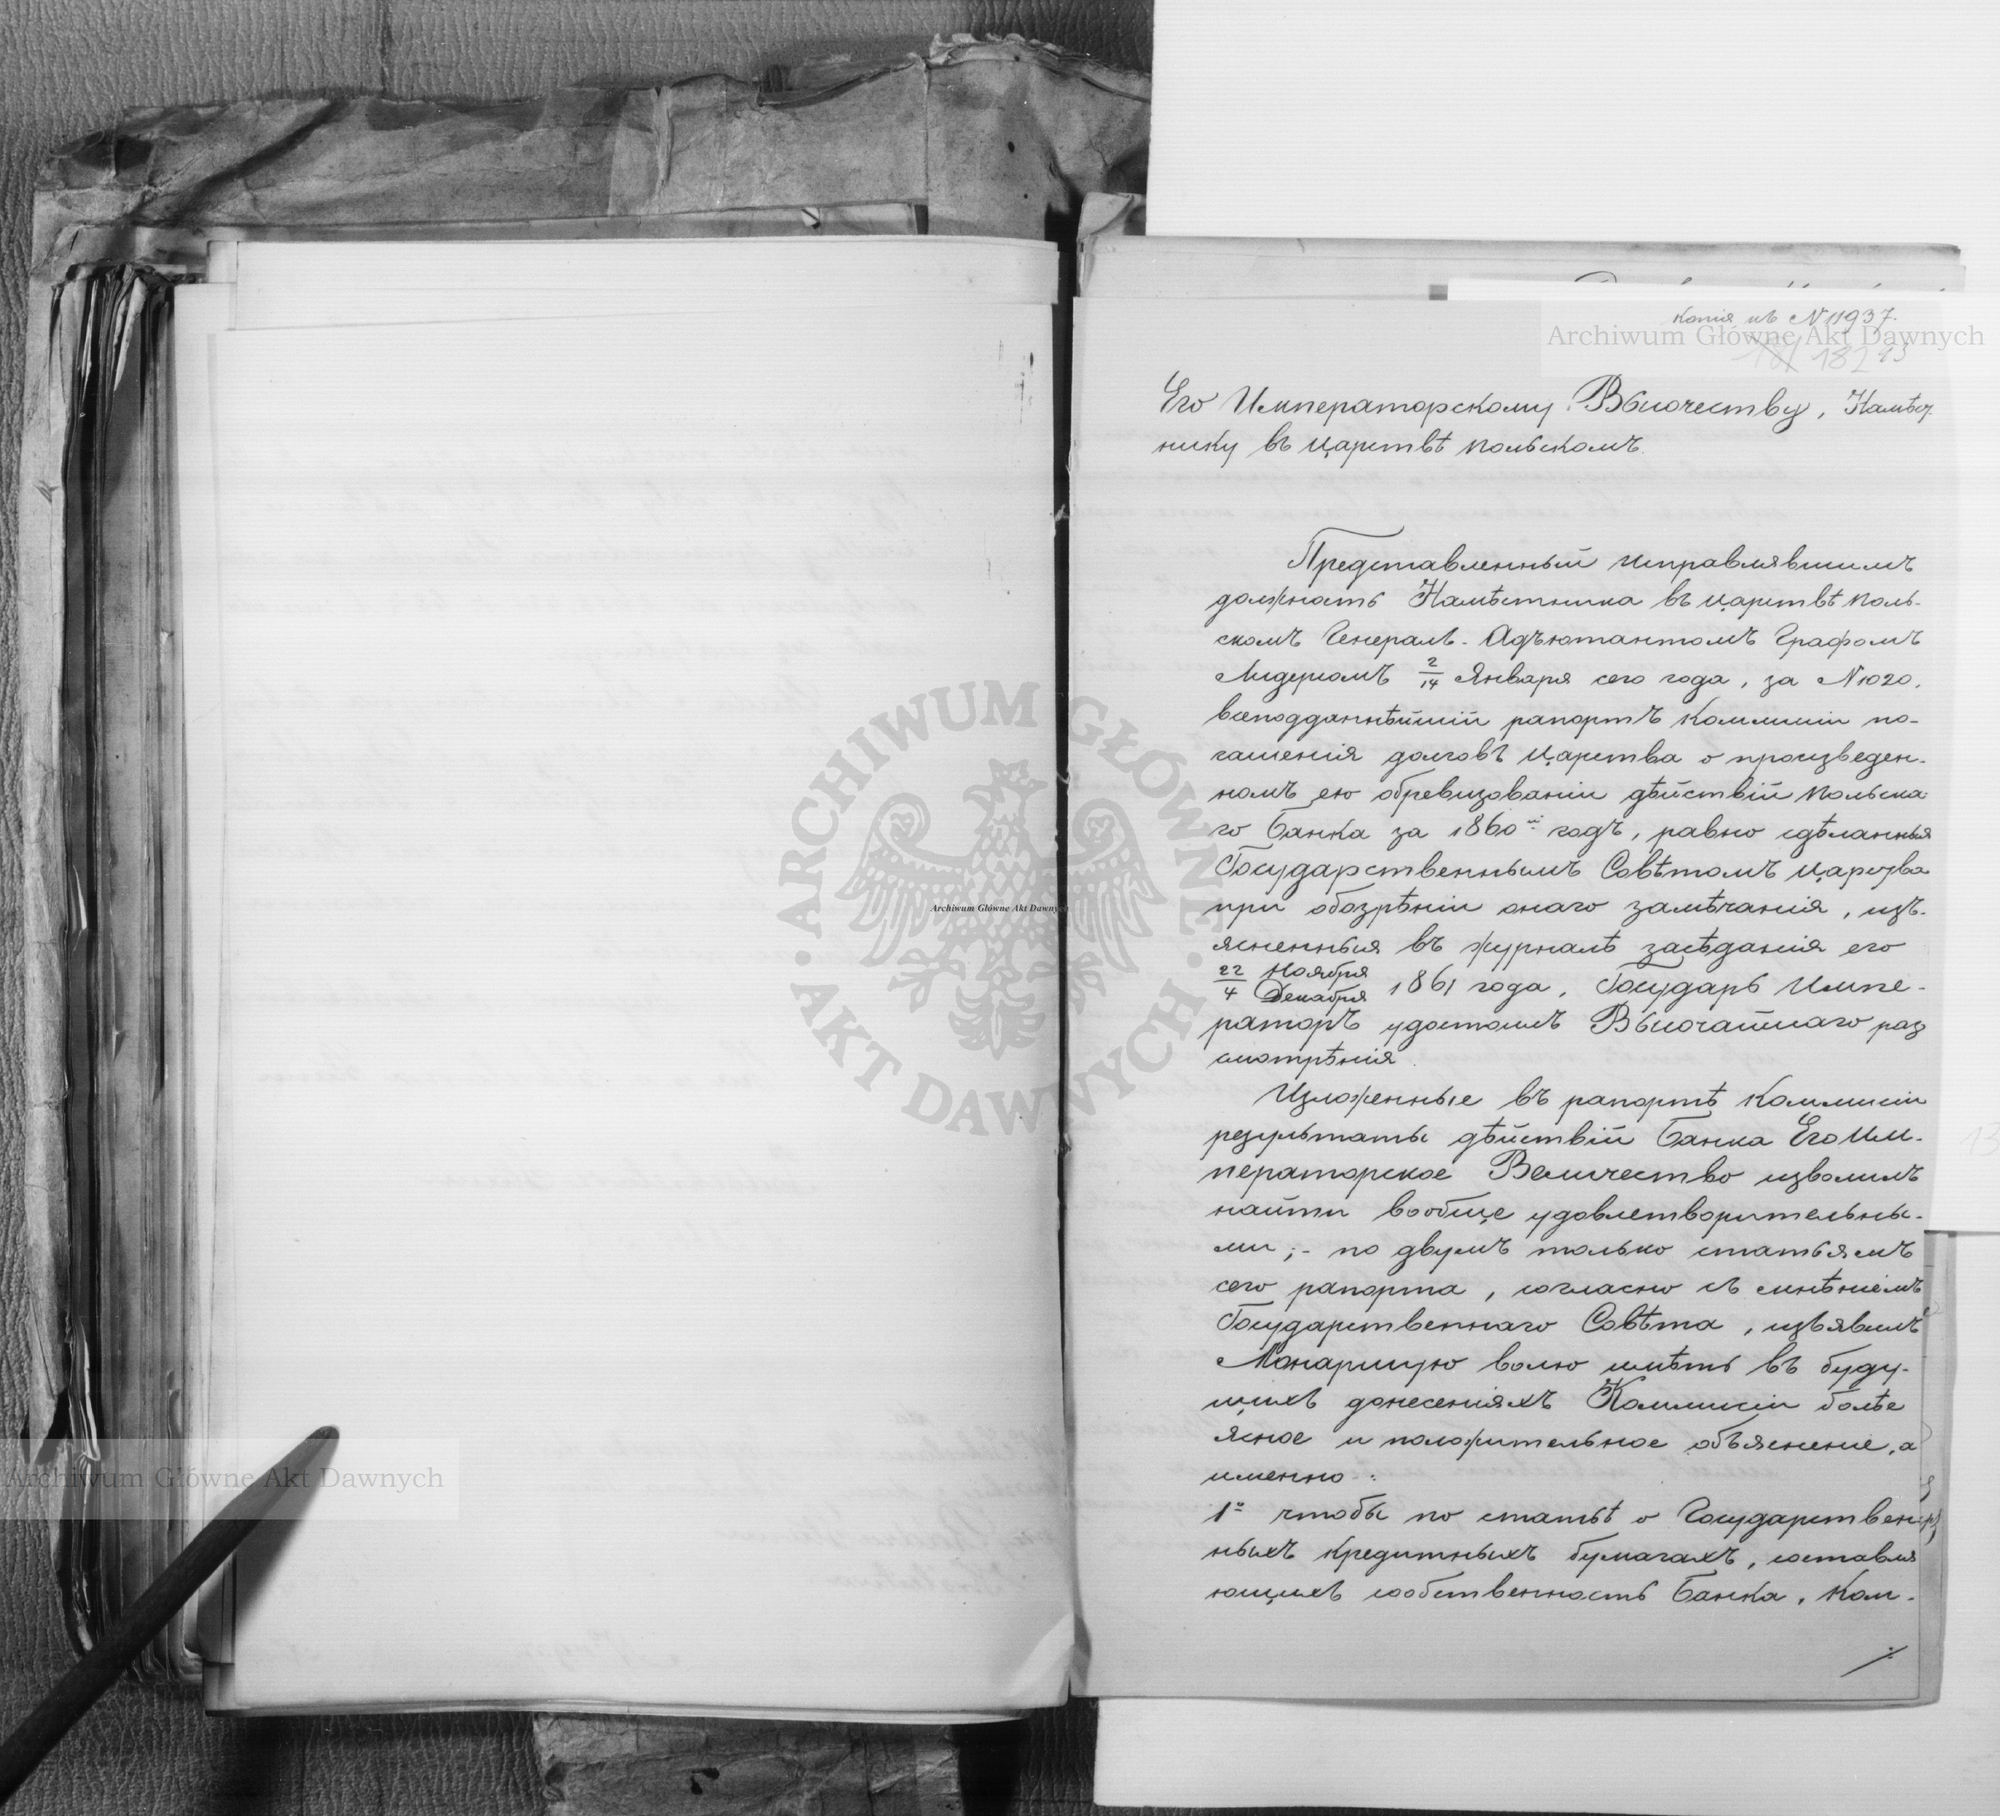 Копія къ № 11937.
182
Его Императорскому Высочеству, Намѣст
нику въ Царствѣ Польскомъ.
Представленный исправлявшимъ
должность Намѣстника въ Царствѣ Поль-
скомъ Генералъ-Адъютантомъ Графомъ
Лидерсомъ 2/14 Января сего года, за № 1020,
всеподданнѣйшій рапортъ Коммисіи по-
гашенія долговъ Царства о произведен-
номъ ею обревизованіи дѣйствій Польска
го Банка за 1860й годъ, равно сдѣланныя
Государственнымъ Совѣтомъ Царства
при обозрѣніи онаго замѣчанія, изъ-
ясненныя въ журналѣ засѣданія его
22 Ноября / 4 Декабря 1861 года, Государь Импе-
раторъ удостоилъ Высочайшаго раз
смотрѣнія.
Изложенные въ рапортѣ Коммисіи
результаты дѣйствій Банка Его Им-
ператорское Величество изволилъ
найти вообще удовлетворительны-
ми;- по двумъ только статьямъ
сего рапорта, согласно съ мнѣніемъ
Государственнаго Совѣта, изъявилъ
Монаршую волю имѣть въ буду-
щихъ донесеніяхъ Коммисіи болѣе
ясное и положительное объясненіе, а
именно:
1о чтобы по статьѣ о Государствен-
ныхъ кредитныхъ бумагахъ, составля
ющихъ собственность Банка, Ком-
./.
Archiwum Główne Akt Dawnych
Archiwum Główne Akt Dawnych
Archiwum Główne Akt Dawnych
ARCHIWUM GŁÓWNE AKT DAWNYCH